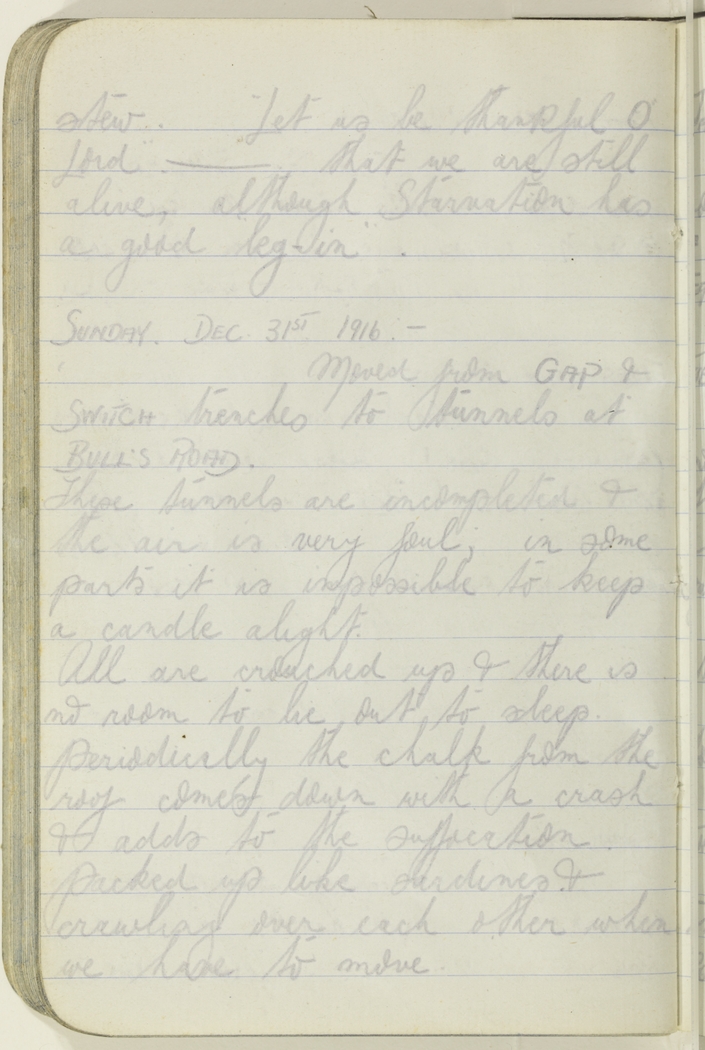 stew.. "Let us be thankful O
Lord" ——— . that we are still
alive, although Starvation has
a good "leg-in" .
SUNDAY. DEC 31ST 1916. —
Moved from GAP &
SWITCH trenches to tunnels at
BULL'S ROAD.
These tunnels are incompleted &
the air is very foul; in some
parts it is impossible to keep
a candle alight.
All are crouched up & there is
no room to lie out to sleep.
Periodically the chalk from the
roof comes down with a crash
& adds to the suffocation.
Packed up like sardines &
crawling over each other when
we have to move.